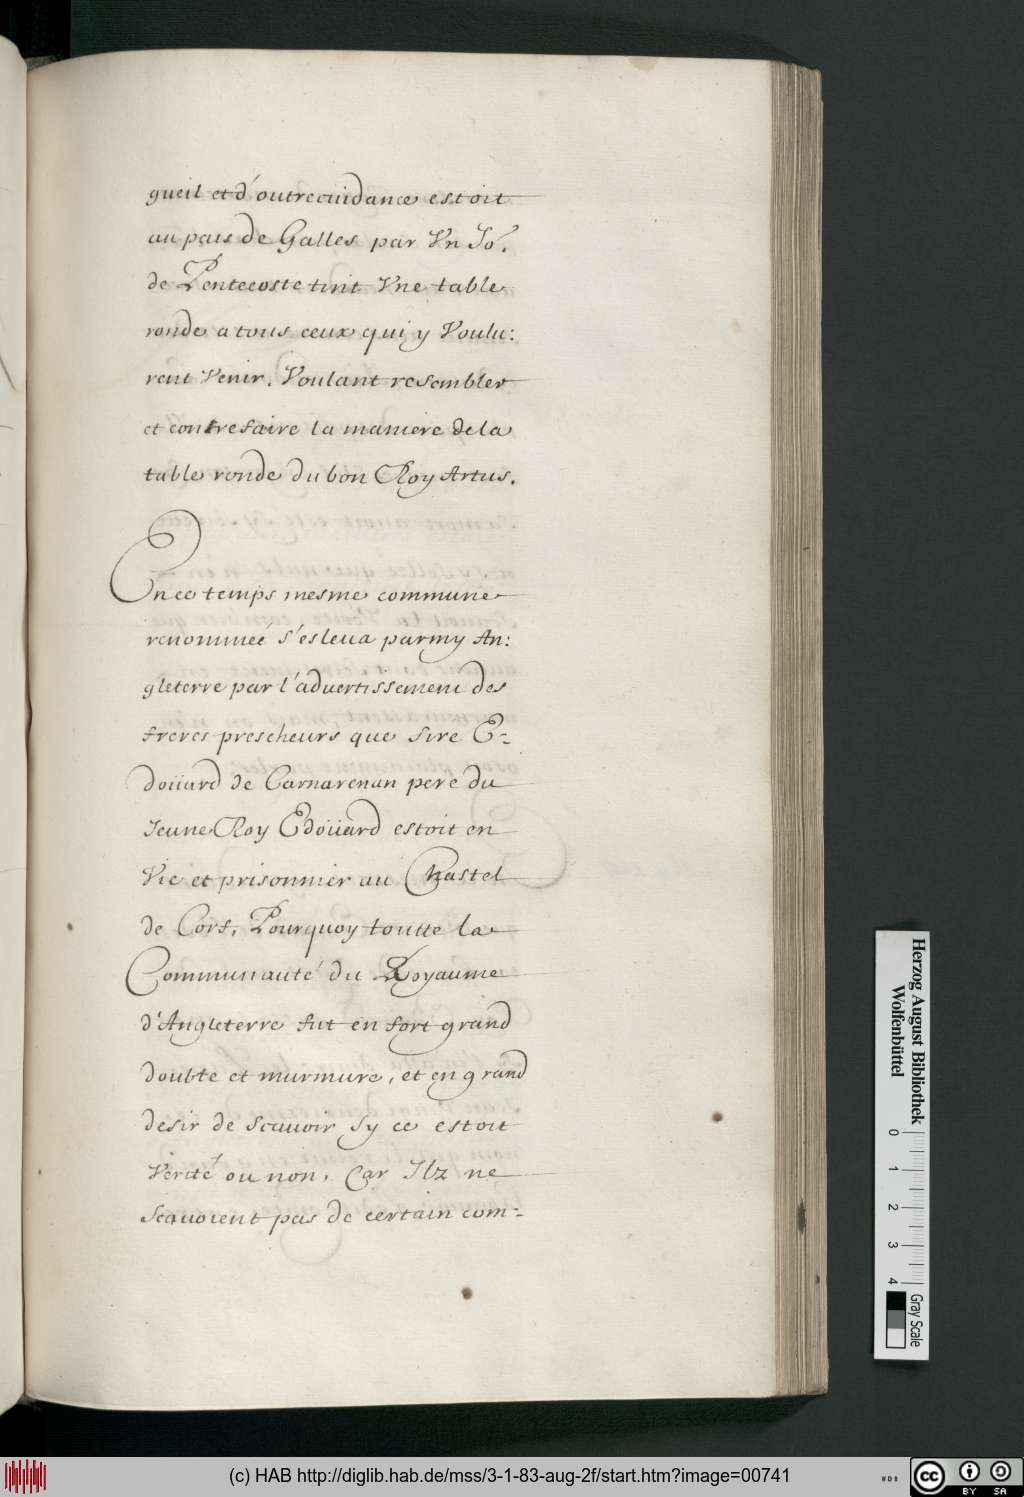 gueil et d'outrecuidance estoit
au pais de Galles par Vn Jo.^r
de Pentecoste tint Vne table
ronde a tous ceux qui y Voulu:
rent Venir. Voulant resembler
et contrefaire la maniere dela
table ronde du bon Roy Artus.
En ce temps mesme commune
renommeé s'esleua parmy An:
gleterre par l'aduertissement des
freres prescheurs que Sire E-
doüard de Carnarenan pere du
Jeune Roy Edoüard estoit en
Vie et prisonnier au Chastel
de Corf, Pourquoy toutte la
Communauté du Royaume
d'Angleterre fut en fort grand
doubte et murmure, et en grand
desir de scauoir sy ce estoit
Verité ou non, Car Ilz ne
Scauoient pas de certain com-
Herzog August Bibliothek
Wolfenbüttel
0 1 2 3 4
Gray Scale
(c) HAB http://diglib.hab.de/mss/3-1-83-aug-2f/start.htm?image=00741
WDB
cc BY SA